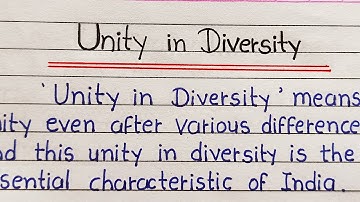 Unity in Diversity
'Unity in Diversity' means
ity even after various difference
d this unity in diversity is the
sential characteristic of India.